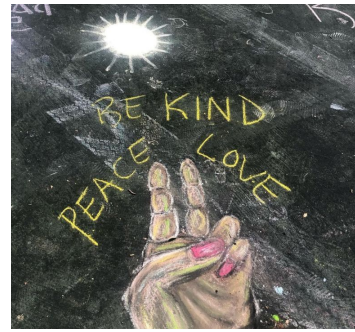 BE KIND
PEACE LOVE